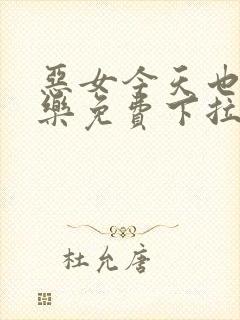 惡女今天也
樂免費下拉
杜允唐